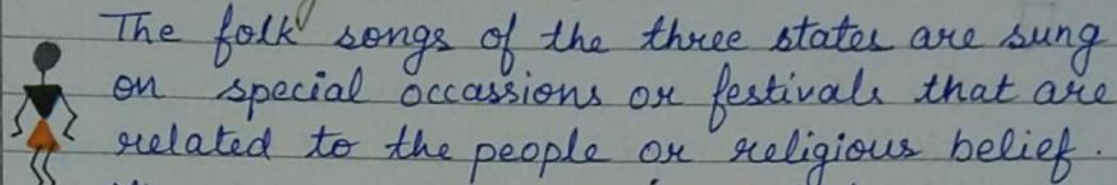 The folk songs of the three states are sung
on special occassions or festivals that are
related to the people or religious belief.